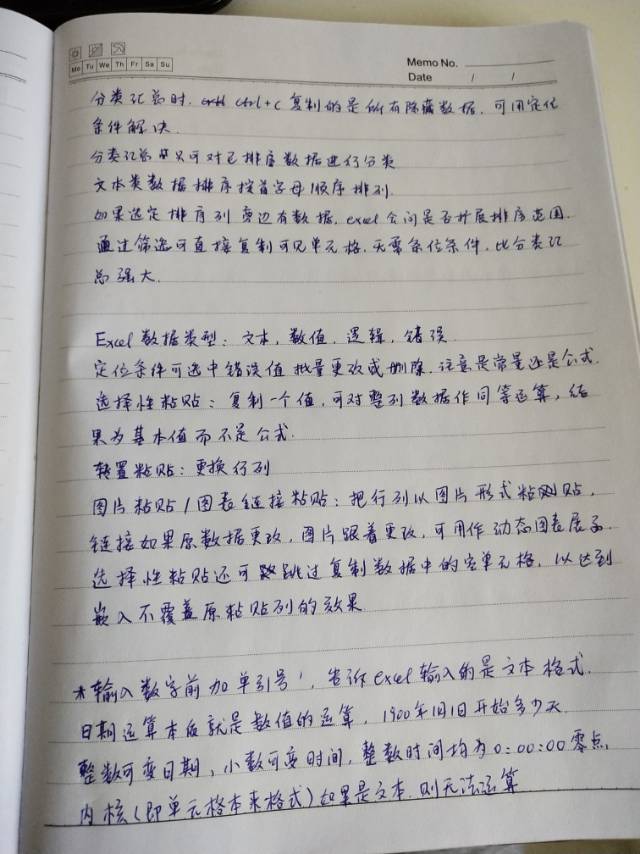 Mo Tu We Th Fr Sa Su
Memo No.
Date / /
分类汇总时. ctrl+c 复制的是所有隐藏数据. 可用定位
条件解决.
分类汇总只可对已排序数据进行分类
文本类数据排序按首字母顺序排列.
如果选定排序列旁边有数据, excel会问是否扩展排序范围.
通过筛选可直接复制可见单元格. 无需条位条件. 比分类汇
总强大.
Excel数据类型: 文本, 数值, 逻辑, 错误
定位条件可选中错误值批量更改或删除. 注意是常量还是公式.
选择性粘贴: 复制一个值, 可对整列数据作同等运算, 结
果为基本值而不是公式.
转置粘贴: 更换行列
图片粘贴/图表链接粘贴: 把行列以图片形式粘贴,
链接如果原数据更改, 图片跟着更改, 可用作动态图表展示.
选择性粘贴还可跳过复制数据中的空单元格, 以达到
嵌入不覆盖原粘贴列的效果.
*输入数字前加单引号', 告诉excel输入的是文本格式.
日期运算本质就是数值的运算, 1900年1月1日开始多少天.
整数可变日期, 小数可变时间, 整数时间均为0:00:00零点,
内核(即单元格本来格式)如果是文本, 则无法运算